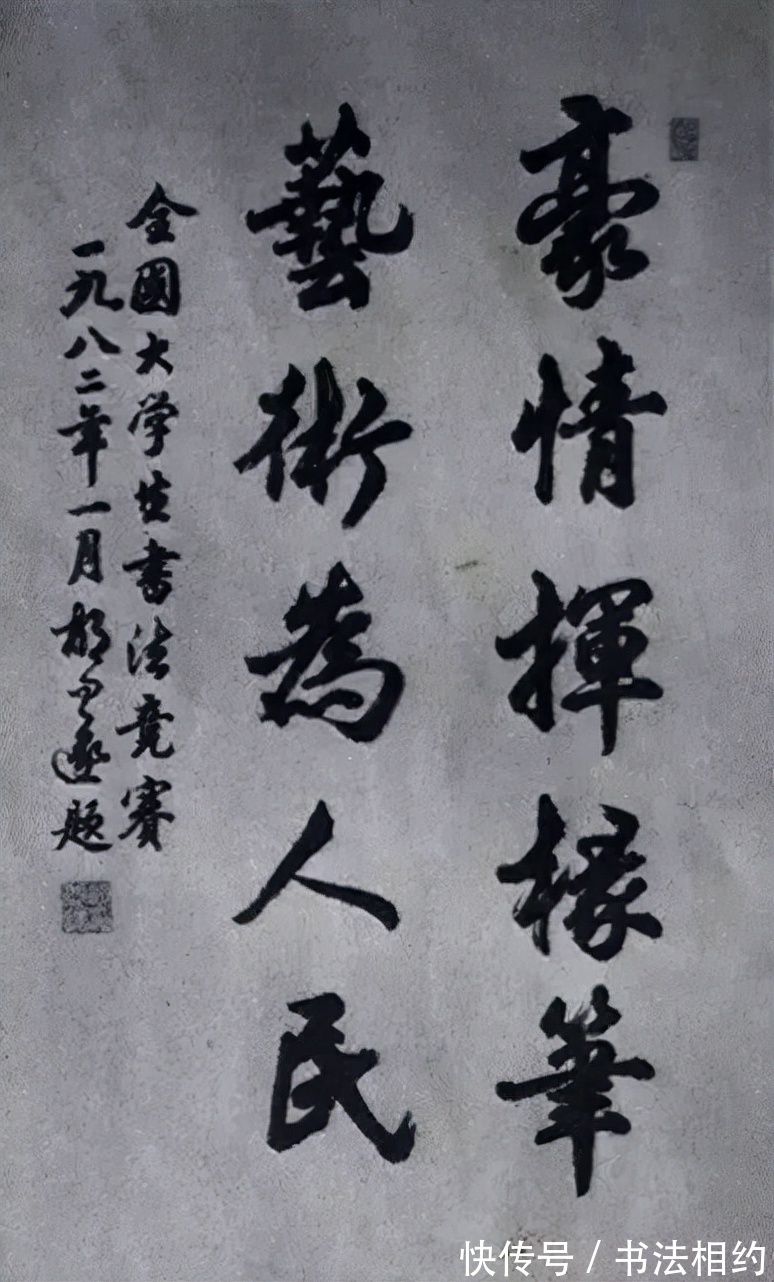 豪情揮椽筆
藝術為人民
全國大学生書法竞賽
一九八二年一月胡里邀题
快传号 / 书法相约